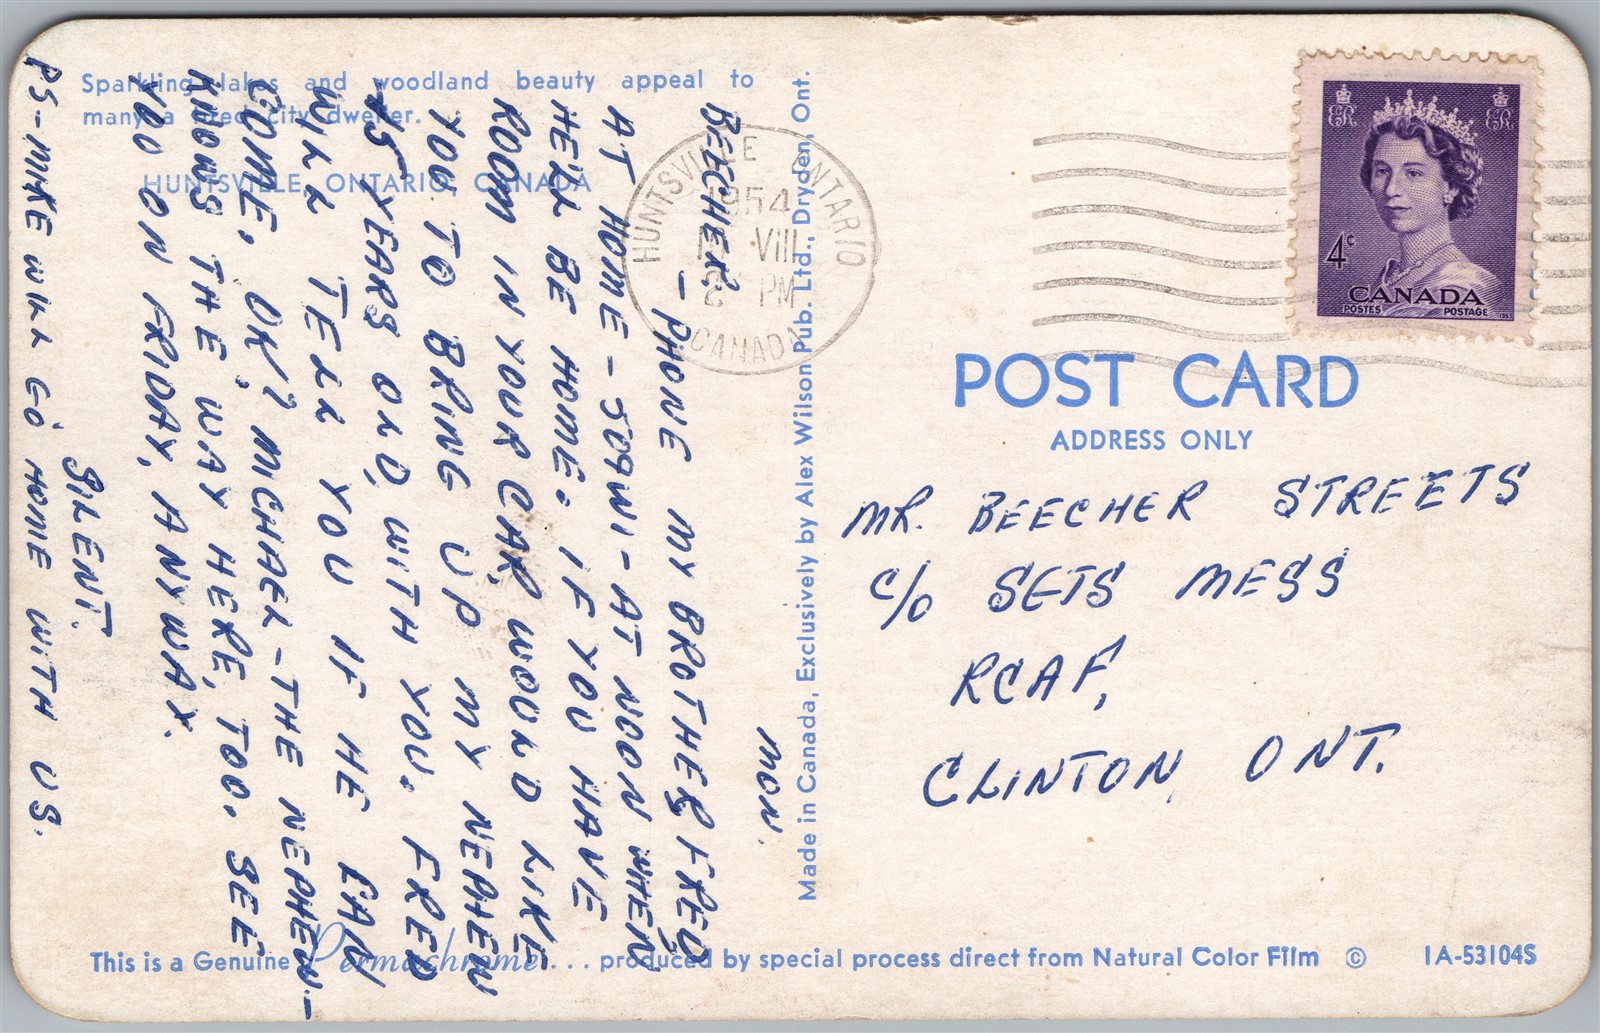 Sparkling lakes and woodland beauty appeal to
many a tired city dweller.
HUNTSVILLE, ONTARIO CANADA
MON.
BEECHER
- PHONE MY BROTHER FRED
AT HOME - 509WI - AT NOON WHEN
HE'LL BE HOME. IF YOU HAVE
ROOM IN YOUR CAR, WOULD LIKE
YOU TO BRING UP MY NEPHEW
15 YEARS OLD, WITH YOU. FRED
WILL TELL YOU IF HE CAN
COME, OK? MICHAEL - THE NEPHEW -
KNOWS THE WAY HERE, TOO. SEE
YOU ON FRIDAY, ANYWAY.
BLENT.
PS - MIKE WILL GO HOME WITH US.
Made in Canada, Exclusively by Alex Wilson Pub. Ltd., Dryden, Ont.
HUNTSVILLE ONTARIO
1954
VIII
PM
CANADA
ER ER
4c
CANADA
POSTES POSTAGE
1953
POST CARD
ADDRESS ONLY
MR. BEECHER STREETS
C/O SGTS MESS
RCAF,
CLINTON, ONT.
This is a Genuine Permachrome... produced by special process direct from Natural Color Film © 1A-53104S